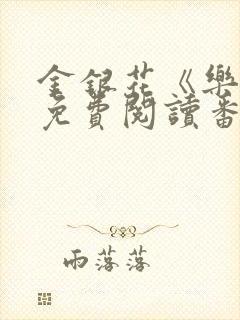 金銀花《樂
免費閱讀番
雨落落